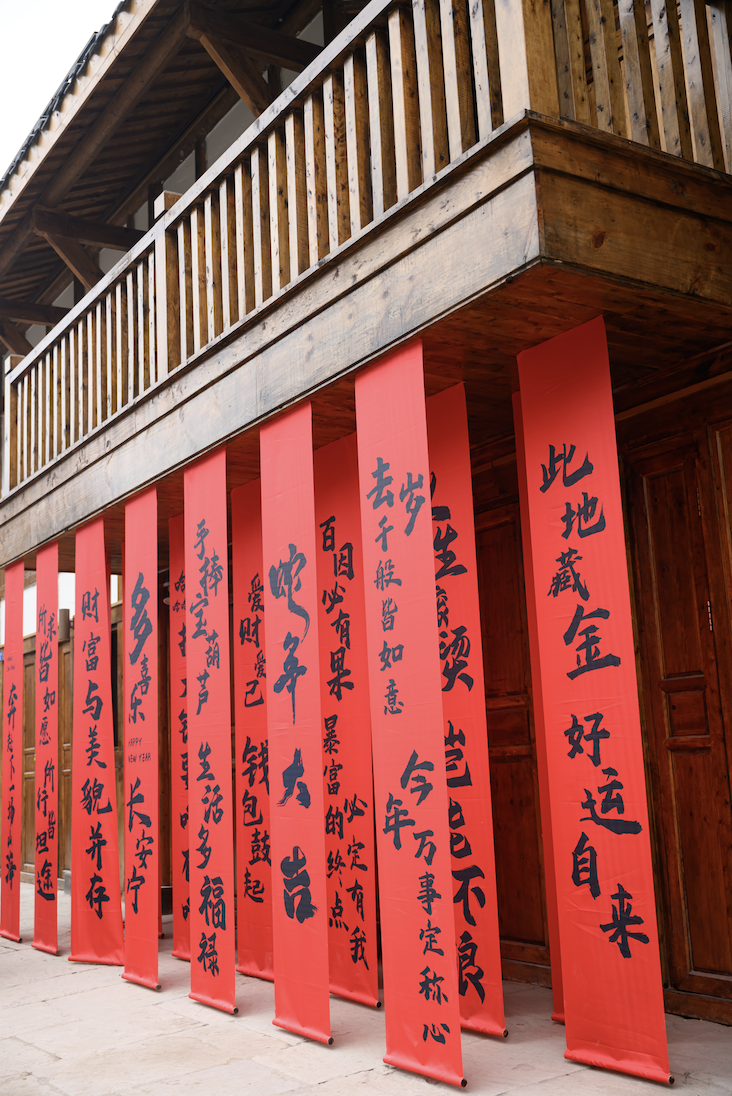 所求皆如愿 所行皆坦途
财富与美貌并存
多喜乐
HAPPY
NEW YEAR
长安宁
手捧宝葫芦 生活多福禄
爱财爱己 钱包鼓起
蛇年大吉
百因必有果 暴富的终点必定有我
去岁千般皆如意 今年万事定称心
此地藏金 好运自来